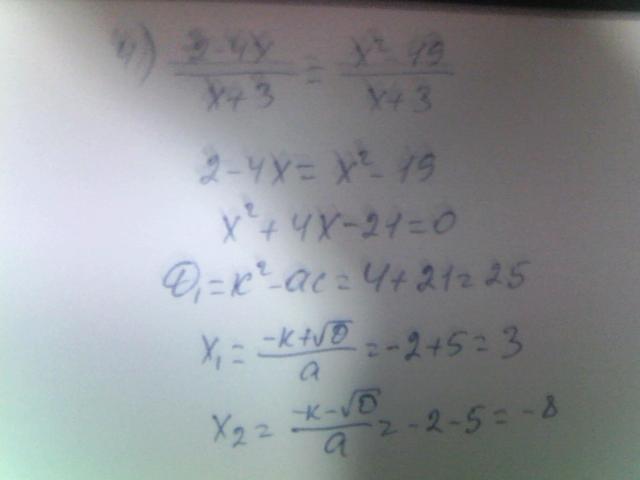 4) (2-4x)/(x+3) = (x²-19)/(x+3)
2-4x = x²-19
x²+4x-21=0
D₁=к²-ac=4+21=25
x₁= (-к+√D)/a =-2+5=3
x₂= (-к-√D)/a =-2-5=-8